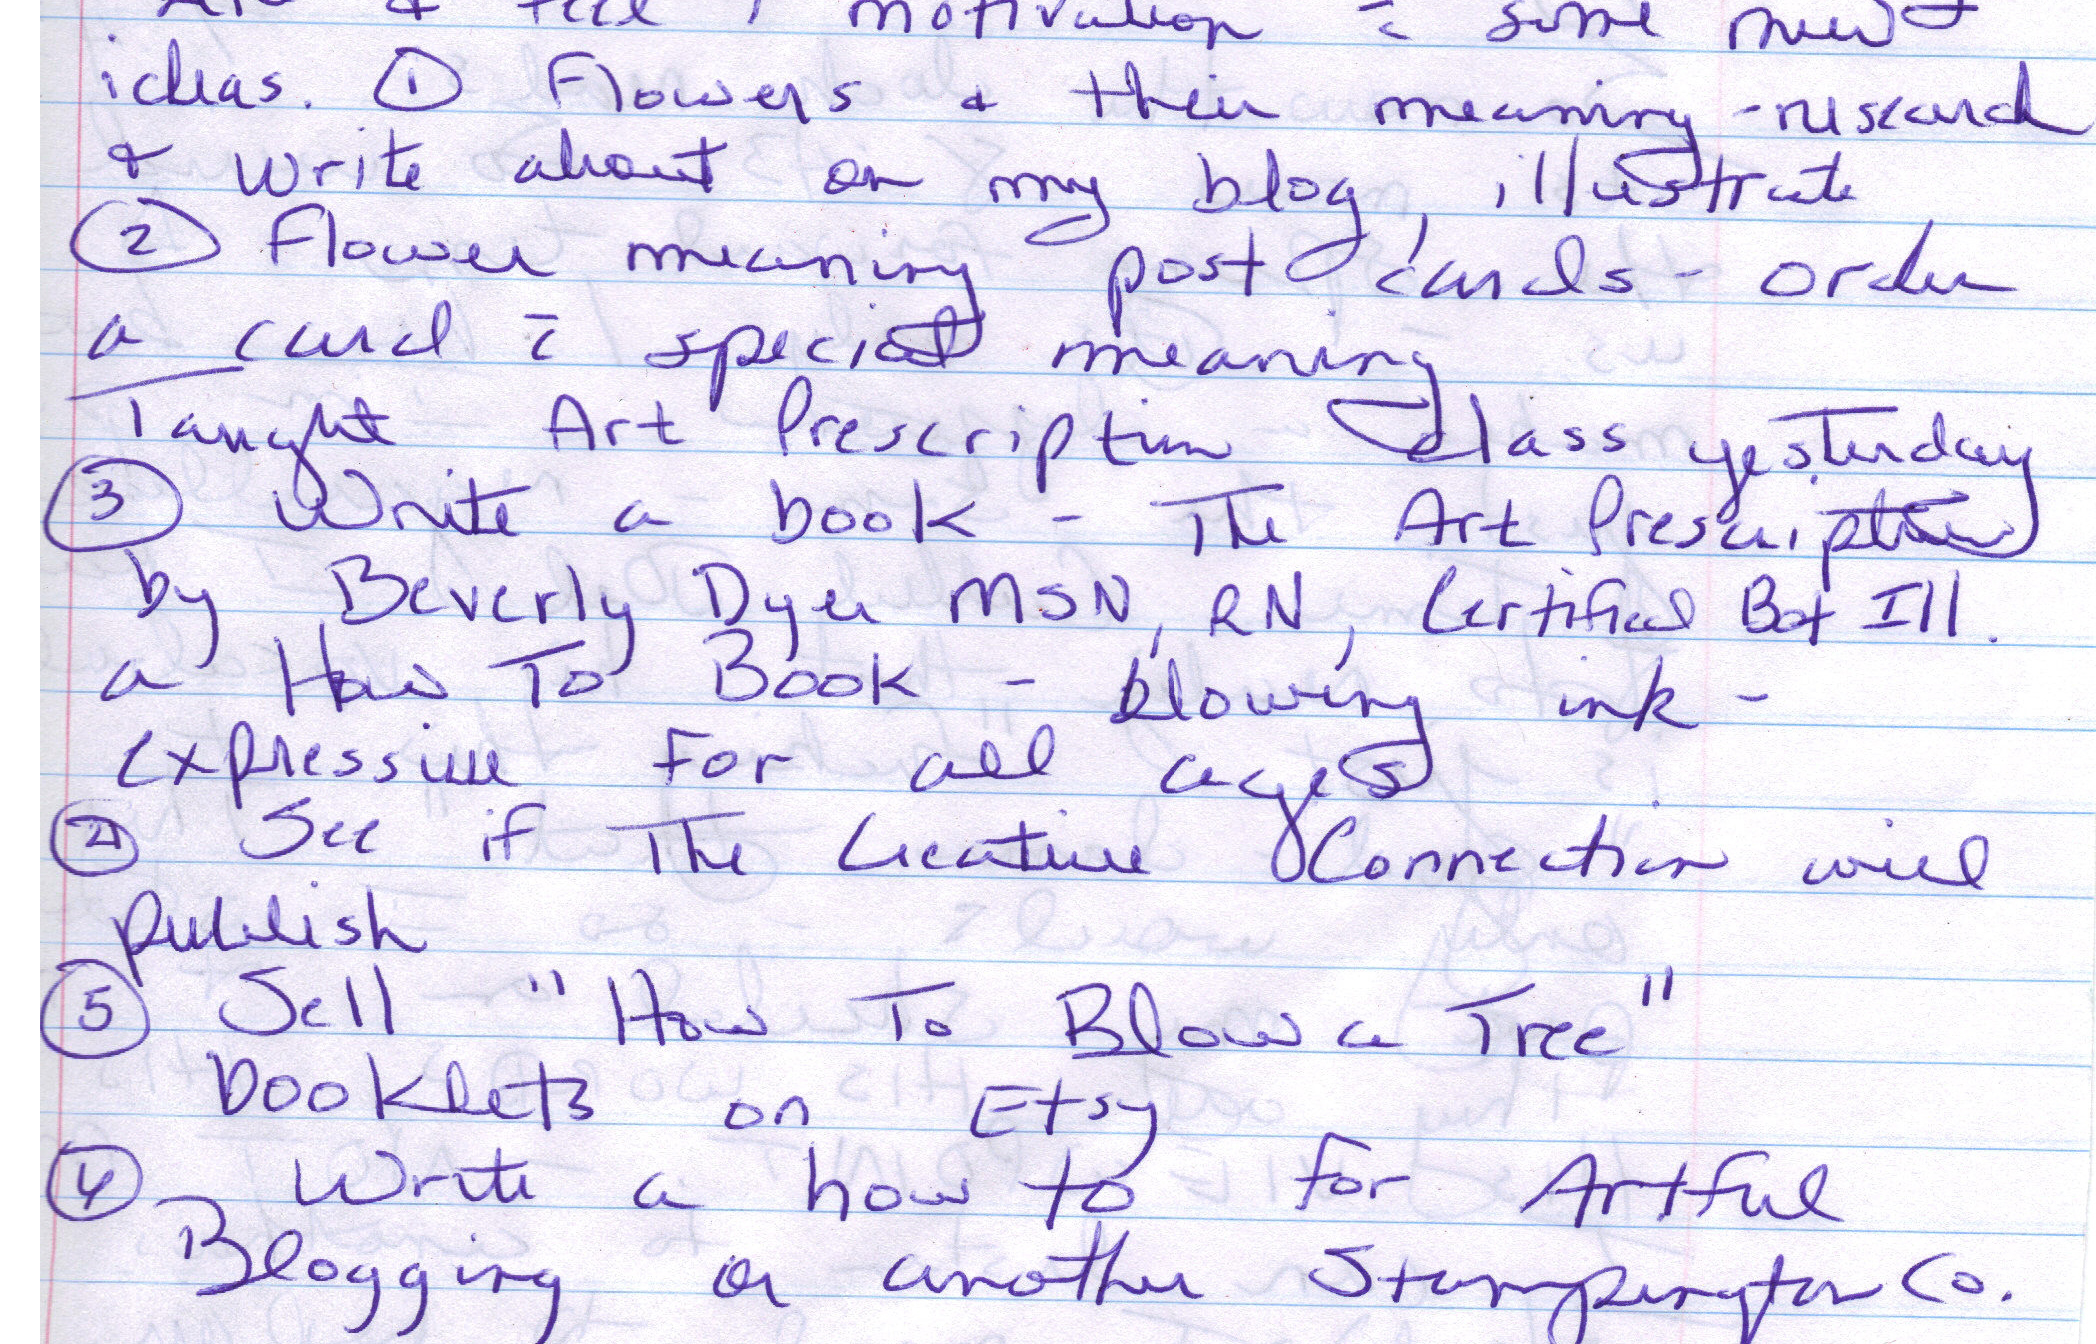 & feel motivation c̄ some new
ideas. ① Flowers & their meaning - research
& write about on my blog, illustrate
② Flower meaning post cards - order
a card c̄ special meaning
Taught Art Prescription Class yesterday
③ Write a book - The Art Prescription
by Beverly Dyer MSN, RN, Certified Bot Ill.
a How To Book - blowing ink -
expressive for all ages
④ See if The Creative Connection will
publish
⑤ Sell "How To Blow a Tree"
booklets on Etsy
Write a how to for Artful
Blogging or another Stampington Co.